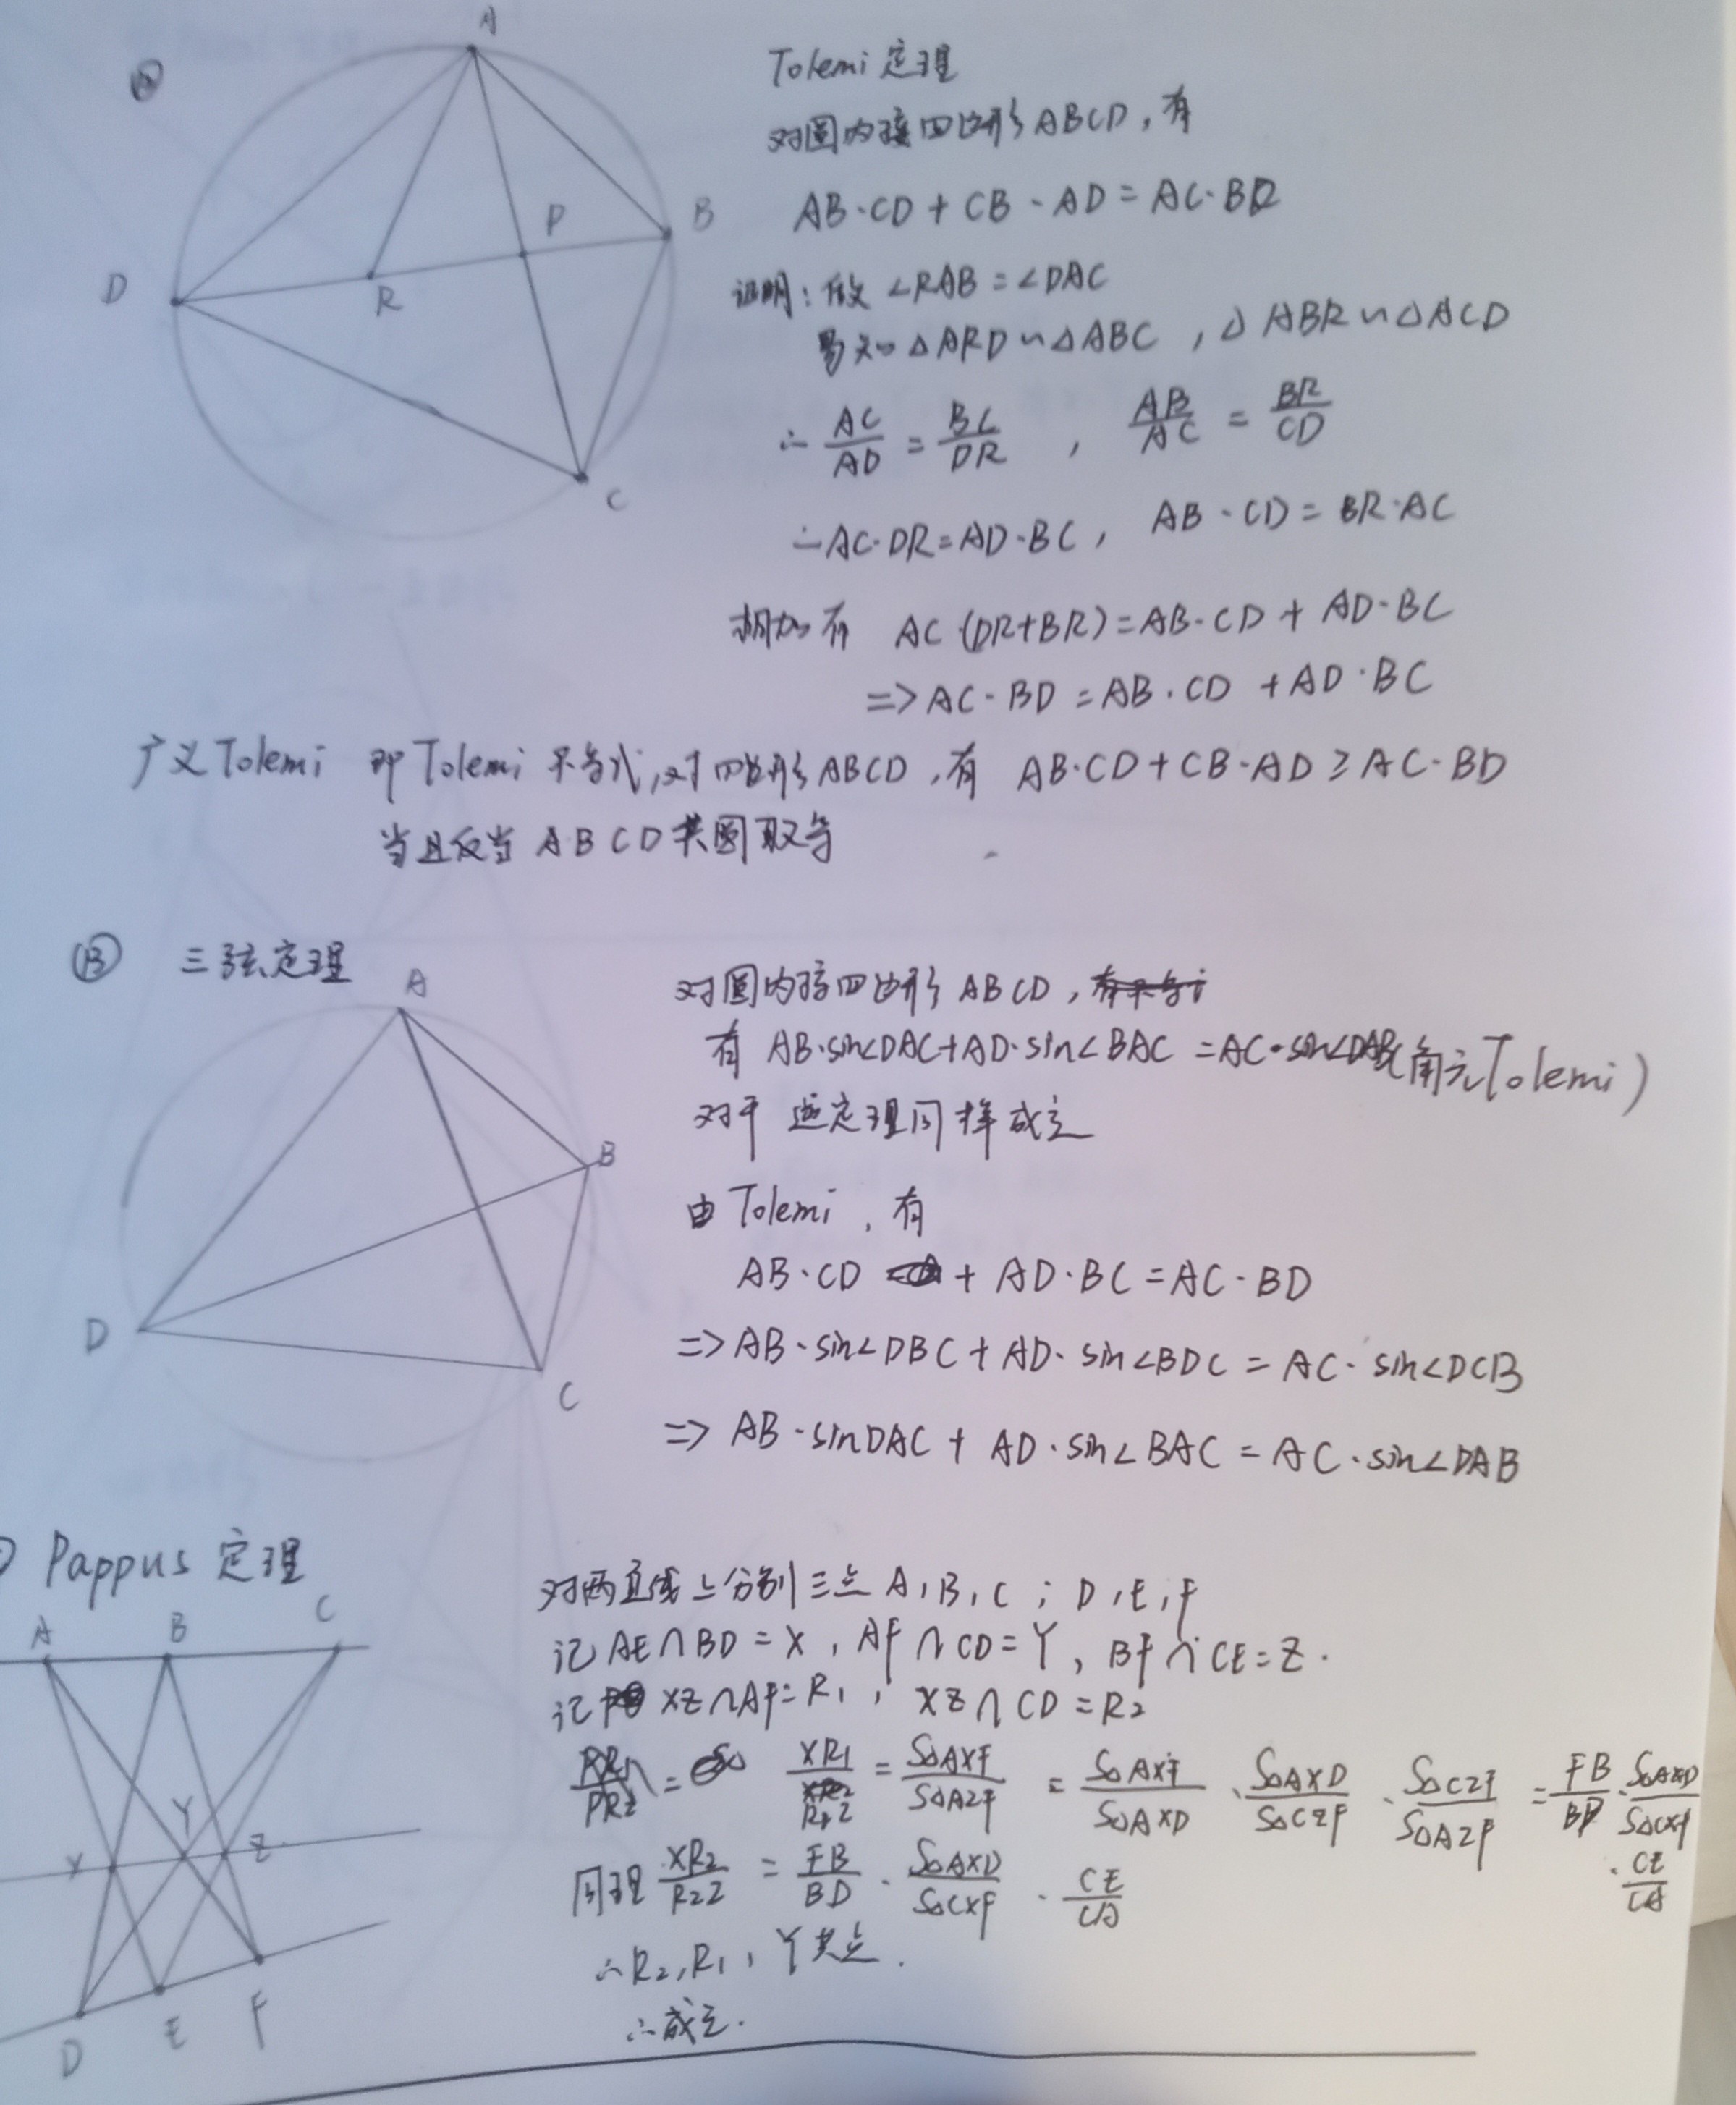 Tolemi 定理
对圆内接四边形 ABCD，有
AB·CD + CB·AD = AC·BD
证明：做 ∠RAB = ∠DAC
易知 △ARD ∽ △ABC ，△ABR ∽ △ACD
∴ AC/AD = BC/DR ， AB/AC = BR/CD
∴ AC·DR = AD·BC， AB·CD = BR·AC
相加有 AC·(DR+BR) = AB·CD + AD·BC
=> AC·BD = AB·CD + AD·BC
广义Tolemi 即Tolemi不等式，对四边形ABCD，有 AB·CD + CB·AD ≥ AC·BD
当且仅当 ABCD 共圆取等
A
B
P
D
R
C
⑬ 三弦定理
对圆内接四边形 ABCD，
有 AB·sin∠DAC + AD·sin∠BAC = AC·sin∠DAB (角元Tolemi)
对于 逆定理同样成立
由 Tolemi，有
AB·CD + AD·BC = AC·BD
=> AB·sin∠DBC + AD·sin∠BDC = AC·sin∠DCB
=> AB·sinDAC + AD·sin∠BAC = AC·sin∠DAB
A
B
D
C
Pappus 定理
对两直线上分别三点 A, B, C ; D, E, F
记 AE∩BD = X，AF∩CD = Y，BF∩CE = Z.
记 XZ∩AF = R₁， XZ∩CD = R₂
XR₁/R₁Z = S△AXF/S△AZF = S△AXF/S△AXD · S△AXD/S△CZF · S△CZF/S△AZF = FB/BD · S△AXD/S△CXF
· CE/CA
同理 XR₂/R₂Z = FB/BD · S△AXD/S△CXF · CE/CA
∴ R₂, R₁, Y 共点.
∴ 成立.
A
B
C
X
Y
Z
D
E
F